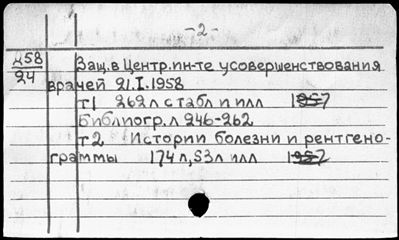 -2-
Д58
24
Защ. в Центр. ин-те усовершенствования
врачей 21.I.1958
т1 262л с табл и илл 1957
Библиогр. л 246-262
т2 Истории болезни и рентгено-
граммы 174л, 53л илл 1957